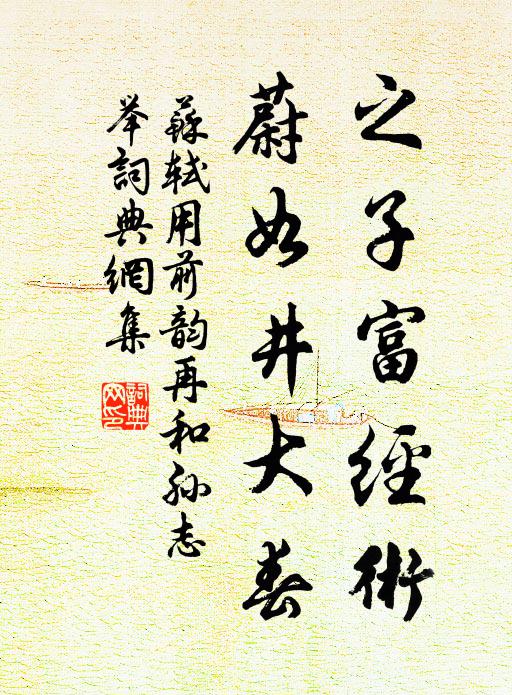 之子富經術
蔚如井大春
蘇軾用前韵再和孫志
举詞典網集
詞典
网印